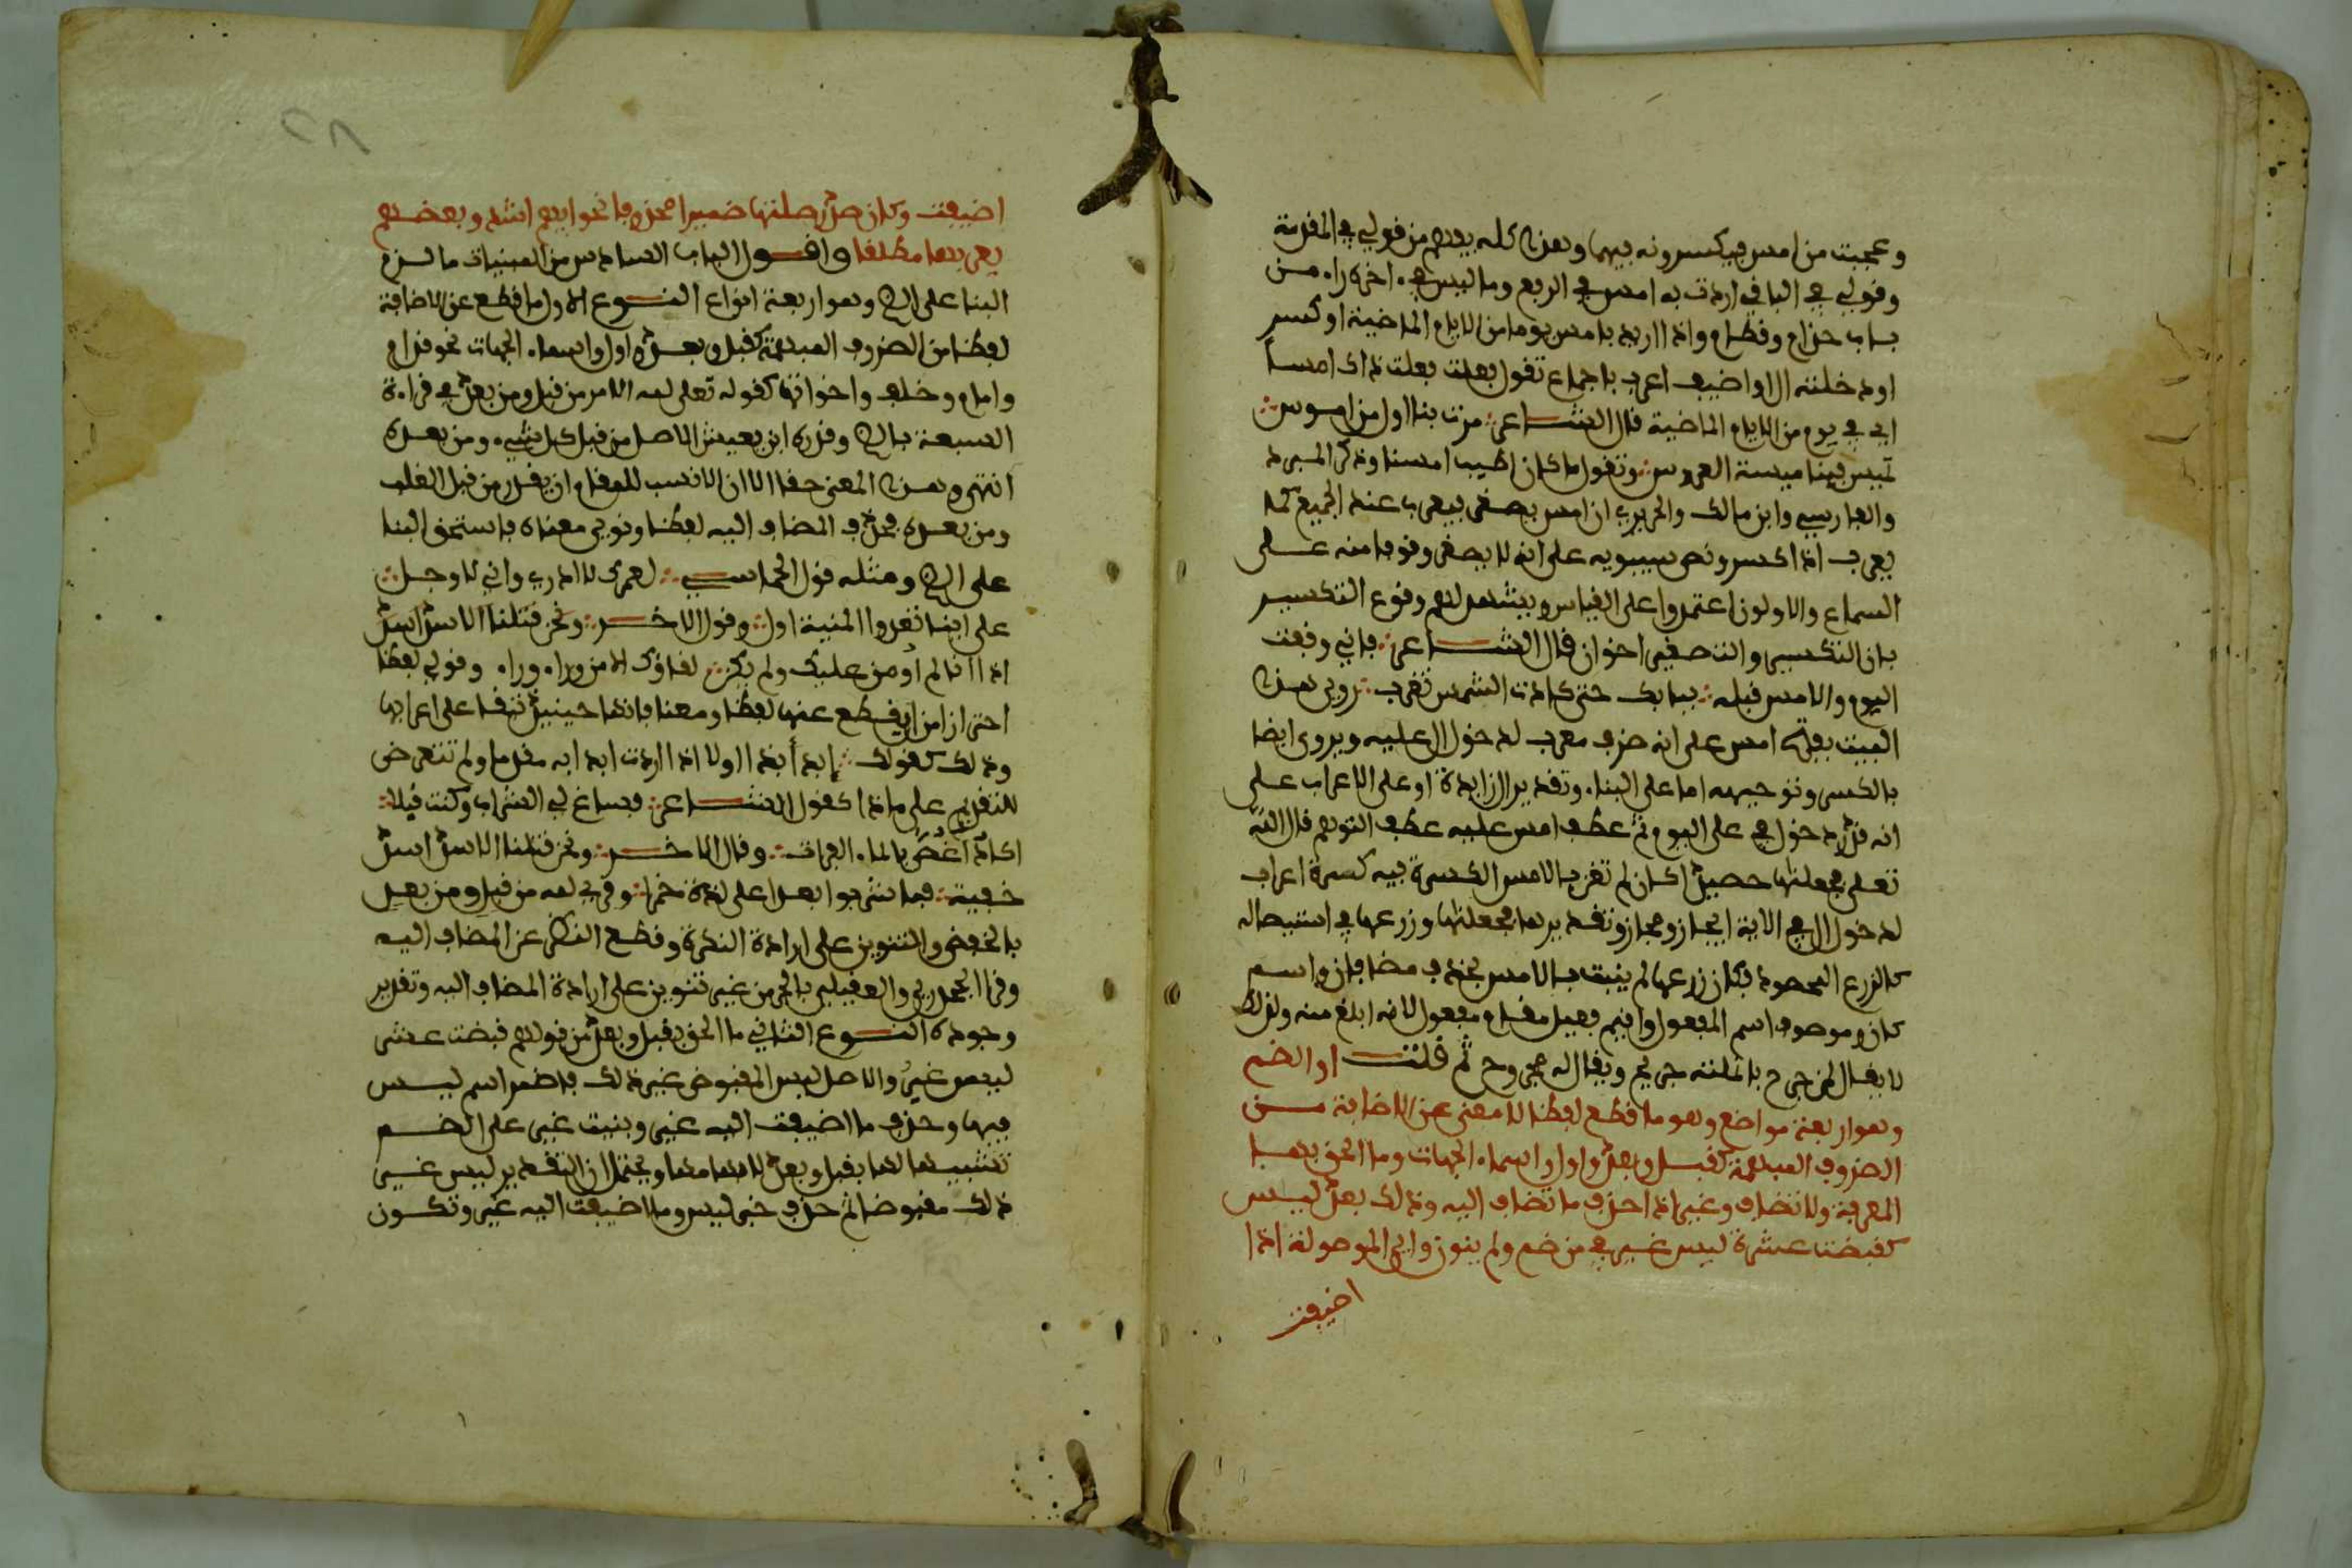 وعجبت من امس فيكسرونه فيهما وهذا كله يفهم من قولي في المقدمة
وقولي في الباقي اردت به امس في الرفع وما ليس في اخره راء من
باب حذام وقطام واذا اريد بامس يوما من الايام الماضية او كسر
او دخلته ال او اضيف اعرب باجماع تقول فعلت ذاك امسا
اي في يوم من الايام الماضية قال الشاعر مرت بنا اول من اموس
تميس فينا ميسة العروس وتقول ما كان اطيب امسنا وذكر المبرد
والفارسي وابن مالك والحريري ان امس يصغر فيعرب عند الجميع كما
يعرب اذا كسر ونص سيبويه على انه لا يصغر وقوفا منه على
السماع والاولون اعتمدوا على القياس ويشهد لهم وقوع التكسير
بان التكسير والتصغير اخوان قال الشاعر فاني وقفت
اليوم والامس قبله ببابك حتى كادت الشمس تغرب روي هذا
البيت بفتح امس على انه ظرف معرب لدخول ال عليه ويروى ايضا
بالكسر وتوجيهه اما على البناء وتقدير ال زايدة او على الاعراب على
انه قدر دخول في على اليوم ثم عطف امس عليه عطف التوهم قال الله
تعلى فجعلنها حصيدا كان لم تغن بالامس الكسرة فيه كسرة اعراب
لدخول ال في الاية ايجاز ومجاز وتقديرها فجعلنها زرعها في استيصاله
كالزرع المحصود فكان زرعها لم ينبت بالامس فحذف مضافان واسم
كان وموصوف اسم المفعول واقيم فعيل مقام مفعول لانه ابلغ منه ولذلك
لا يقال لمن جرح بانملته جريح ويقال له مجروح ثم قلت او الضم
وهو اربعة مواضع وهو ما قطع لفظا لا معنى عن الاضافة من
الظروف المبهمة كقبل وبعد واول واسماء الجهات وما الحق بها
المعرفة ولا تضاف وغير اذا حذف ما تضاف اليه وذلك بعد ليس
كقبضت عشرة ليس غير في من ضم ولم ينون واي الموصولة اذا
اضيفت
اضيفت وكان صدر صلتها ضميرا محذوفا نحو ايهم اشد وبعضهم
يعربها مطلقا واقول الباب السادس من المبنيات ما لزم
البنا على الضم وهو اربعة انواع النوع الاول ما قطع عن الاضافة
لفظا من الظروف المبهمة كقبل وبعد واول واسماء الجهات نحو قدام
وامام وخلف واخواتها كقوله تعلى لله الامر من قبل ومن بعد في قراءة
السبعة بالضم وقدره ابن يعيش الاصل من قبل كل شيء ومن بعده
انتهى وهذا المعنى حقا الا ان الانسب للمقام ان يقدر من قبل الغلب
ومن بعده فحذف المضاف اليه لفظا ونوي معناه فاستحق البنا
على الضم ومثله قول الحماسي لعمرك لا ادري واني لاوجل
على اينا تغدوا المنية اول وقول الاخر ونحن قتلنا الاسد اسد
اذا انا لم اومن عليك ولم يكن لقاوك الا من وراء وراء وقولي لفظا
احترازا من ان يقطع عنها لفظا ومعنا فانها حينيذ تبقا على اعرابها
وذلك كقولك ابدا بذا اولا اذا اردت ابدا به مقدما ولم تتعرض
للتقديم على ماذا كقول الشاعر فساغ لي الشراب وكنت قبلا
اكاد اغص بالماء الفرات وقال الاخر ونحن قتلنا الاسد اسد
خفية فما شربوا بعدا على لذة خمرا وقري لله من قبل ومن بعد
بالخفض والتنوين على ارادة النكرة وقطع النظر عن المضاف اليه
وقرا الجحدري والعقيلي بالجر من غير تنوين على ارادة المضاف اليه وتقدير
وجوده النوع الثاني ما الحق بقبل وبعد من قولهم قبضت عشر
ليس غير والاصل ليس المقبوض غير ذلك فاضمر اسم ليس
فيها وحذف ما اضيفت اليه غير وبنيت غير على الضم
تشبيها لها بقبل وبعد لابهامها ويحتمل ان التقدير ليس غير
ذلك مقبوضا ثم حذف خبر ليس وما اضيفت اليه غير وتكون